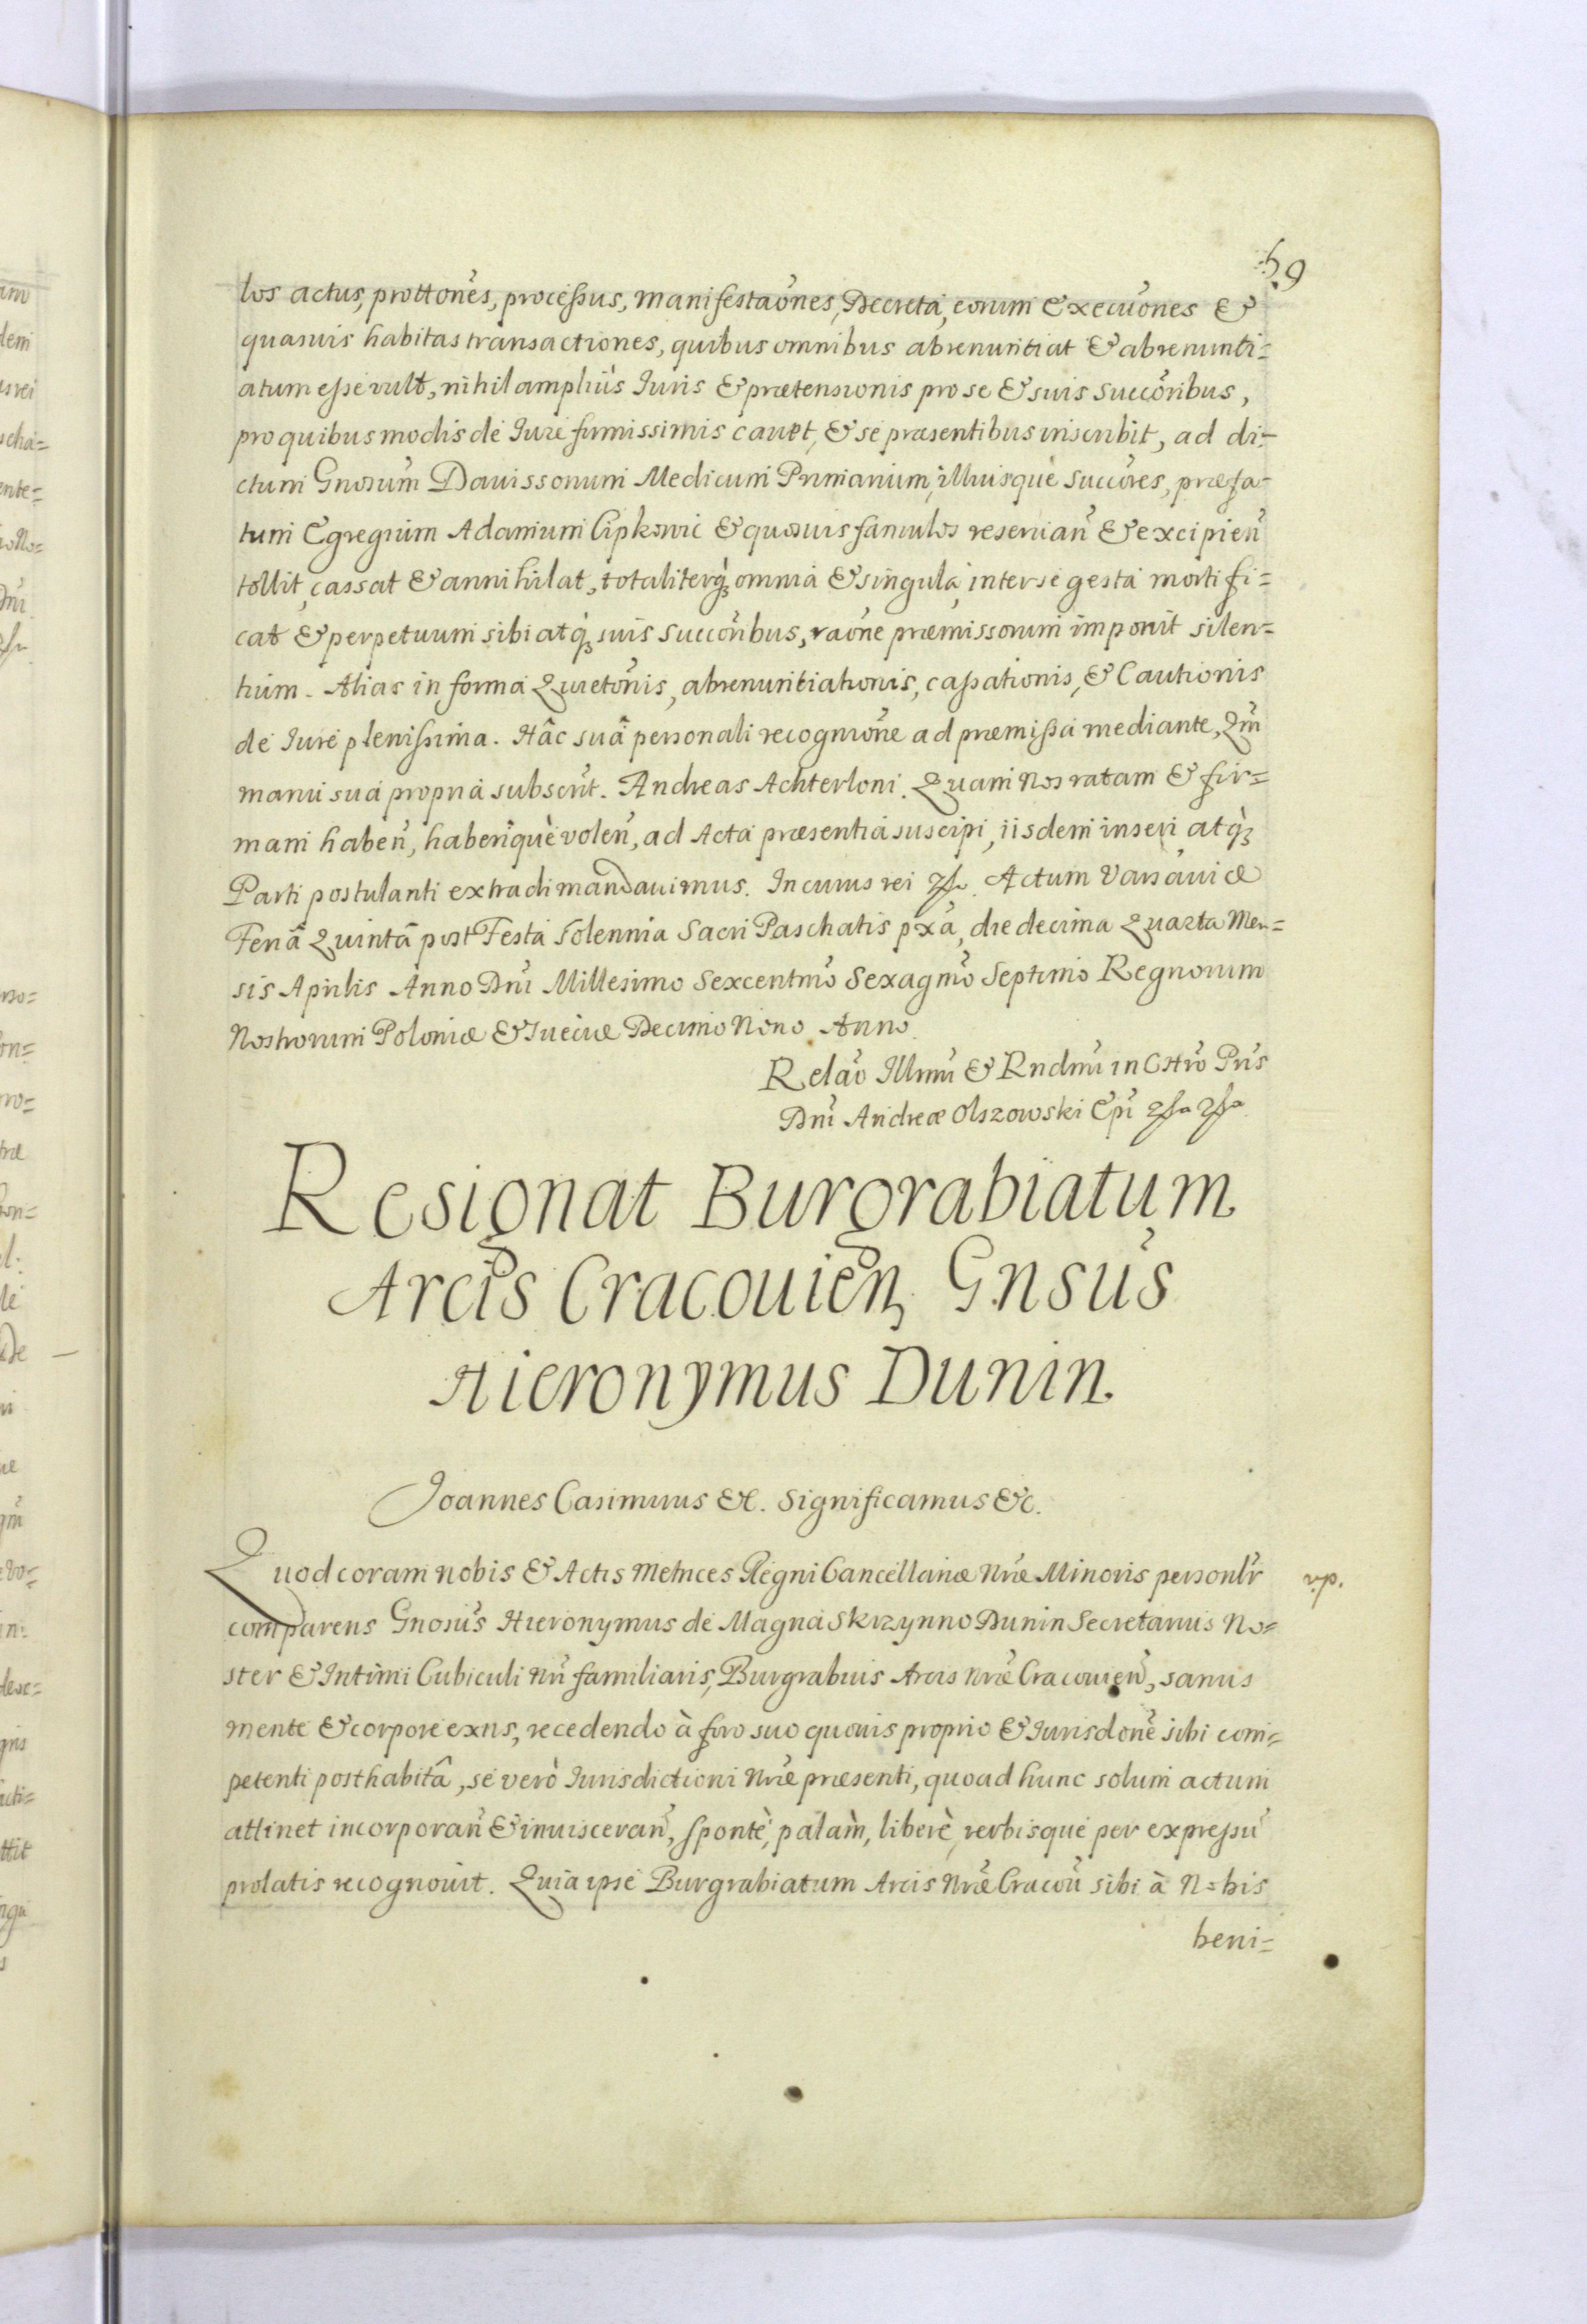 59
los actus, prottones, processus, manifestaones, Decreta, eorum Execuones &
quasuis habitas transactiones, quibus omnibus abrenuntiat & abrenunti=
atum esse vult, nihil amplius Iuris & prætensionis pro se & suis succoribus,
pro quibus modis de Iure firmissimis cauet, & se præsentibus inscribit, ad di=
ctum Gnosum Dauissonum Medicum Primarium, illiusque succores, præfa=
tum Egregium Adamum Cipkowic & quosuis famulos reseruan & excipien
tollit, cassat & annihilat, totaliterq; omnia & singula, inter se gesta mortifi=
cat & perpetuum sibi atq; suis succoribus, raone præmissorum imponit silen=
tium. Alias in forma Quietonis, abrenuntiationis, cassationis, & Cautionis
de Iure plenissima. Hâc suâ personali recognione ad præmissa mediante, Qm
manu sua propria subscrit. Andreas Achterloni. Quam Nos ratam & fir=
mam haben, haberique volen, ad Acta præsentia suscipi, iisdem inseri, atq;
Parti postulanti extradi mandauimus. In cuius rei Actum Varsauiæ
Feriâ Quintâ post Festa Solennia Sacri Paschatis pxa, die decima Quarta Men=
sis Aprilis Anno Dni Millesimo Sexcentmo Sexagmo Septimo Regnorum
Nostrorum Poloniæ & Sueciæ Decimo Nono Anno.
Relao Illmi & Rndmi in Chro Pris
Dni Andreæ Olszowski Epi
Resignat Burgrabiatum
Arcis Cracouien, Gnsus
Hieronymus Dunin.
Joannes Casimirus &c. Significamus &c.
Quod coram nobis & Actis Metrices Regni Cancellariæ Nræ Minoris personlr
comparens Gnosus Hieronymus de Magna Skrzynno Dunin Secretarius No=
ster & Intimi Cubiculi Nri familiaris, Burgrabius Arcis Nræ Cracouien, sanus
mente & corpore exns, recedendo à foro suo quouis proprio & Iurisdone sibi com=
petenti posthabitâ, se verò Iurisdictioni Nræ præsenti, quoad hunc solum actum
attinet incorporan & inuisceran, spontè, palàm, liberè, verbisque per expressu
prolatis recognouit. Quia ipse Burgrabiatum Arcis Nræ Cracou sibi à Nobis
beni=